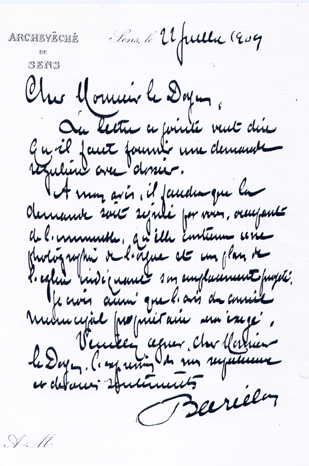 ARCHEVÊCHÉ
DE
SENS
Sens, le 22 Juillet 1909
Cher Monsieur le Doyen,
La lettre ci jointe veut dire
qu'il faut fournir une demande
régulière avec dossier.
A mon avis, il faudra que la
demande soit signée par vous, occupant
de l'immeuble, qu'elle contienne une
photographie de l'orgue et un plan de
l'église indiquant son emplacement projeté.
Je crois aussi que l'avis du conseil
municipal propriétaire sera exigé.
Veuillez agréer, cher Monsieur
le Doyen, l'expression de mes respectueux
et dévoués sentiments
A-M